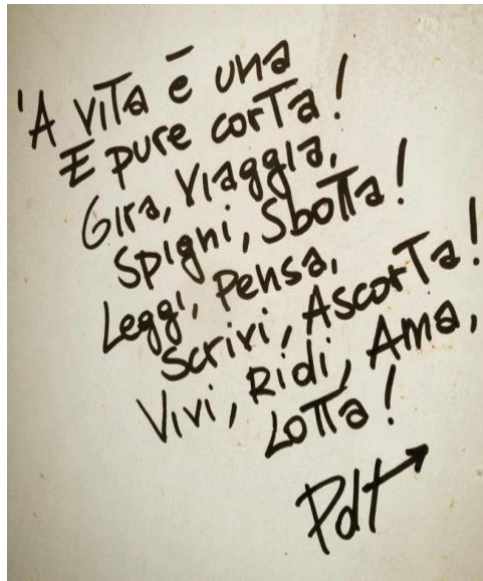 'A vita è una
E pure corta!
Gira, Viaggia,
Spigni, Sbotta!
Leggi, Pensa,
Scrivi, Ascorta!
Vivi, Ridi, Ama,
Lotta!
Pdt